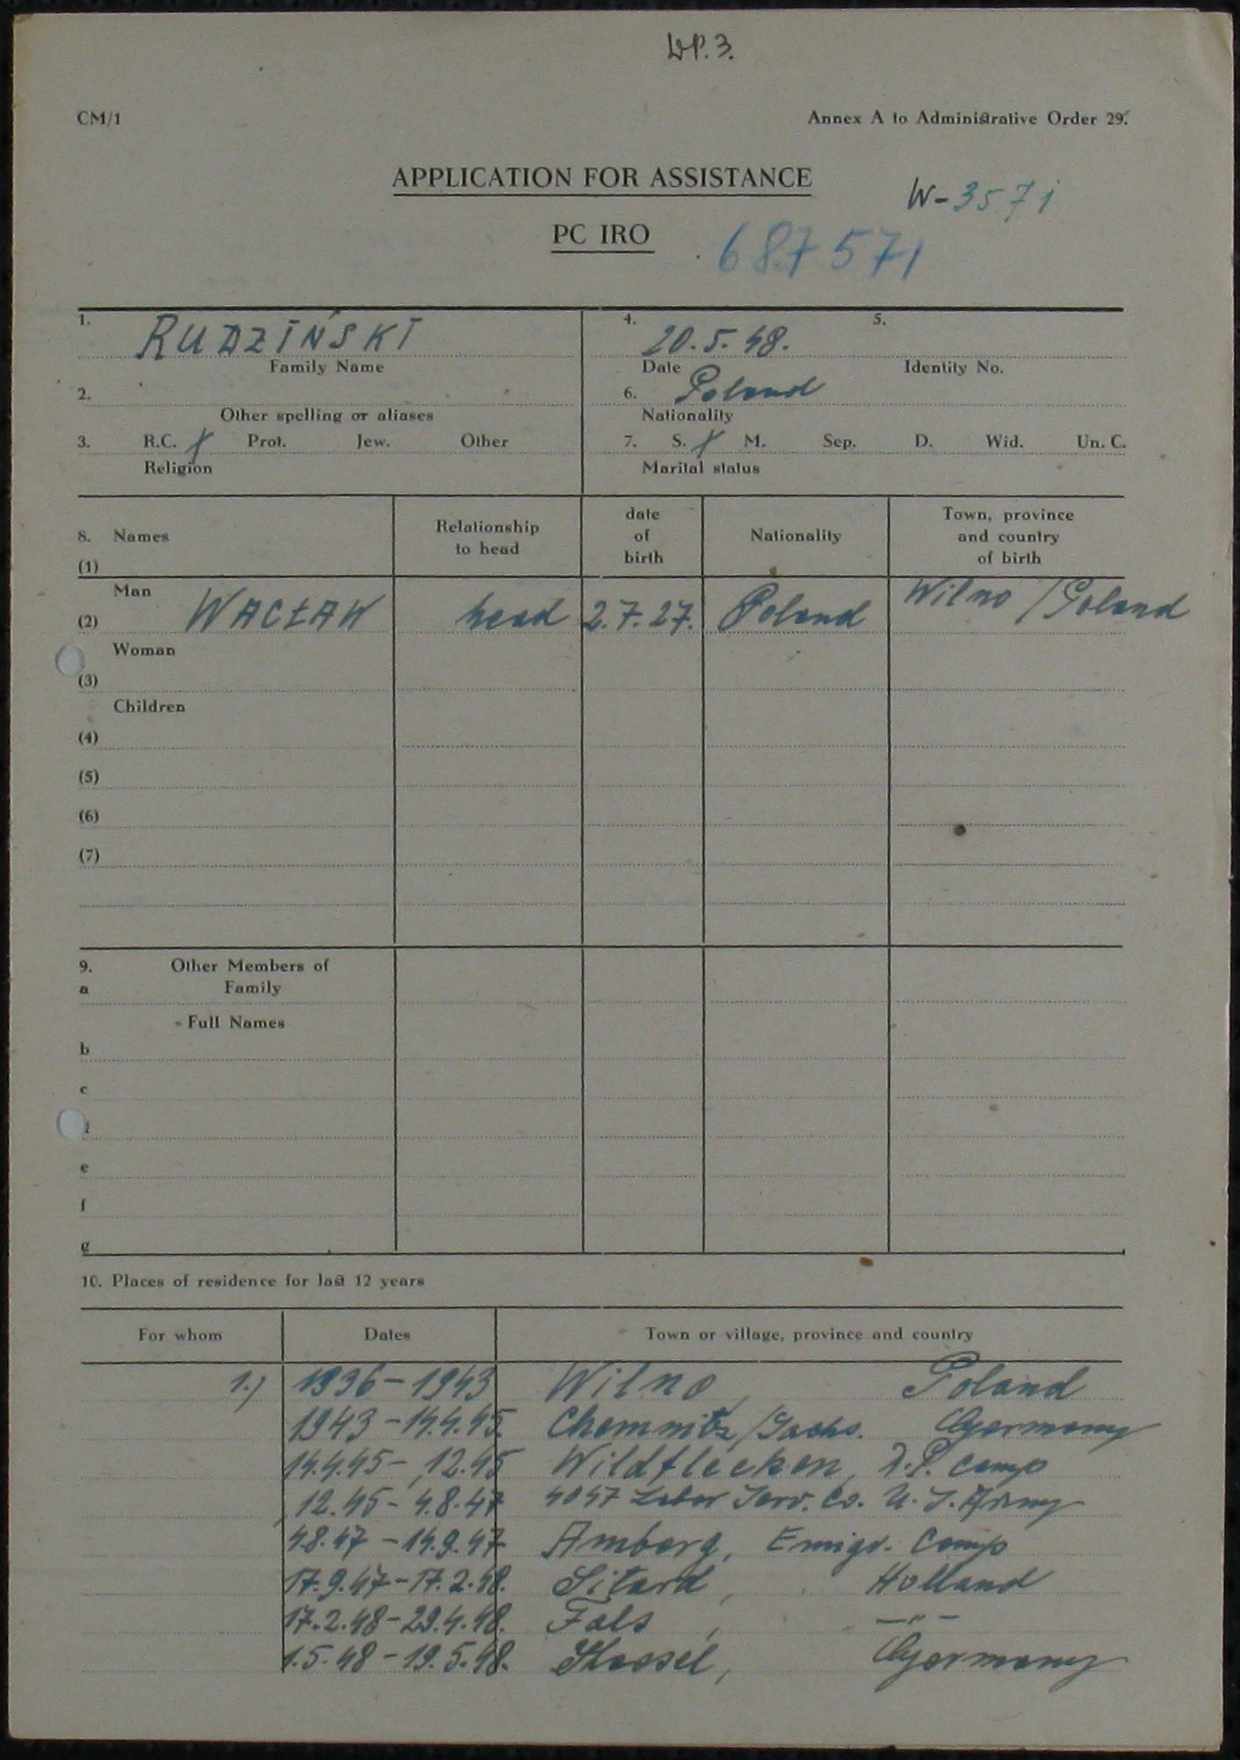 DP.3.
CM/1 Annex A to Administrative Order 29.
APPLICATION FOR ASSISTANCE
W-3571
PC IRO
687571
1. RUDZIŃSKI 4. 20.5.48. 5.
Family Name Date Identity No.
2. 6. Poland
Other spelling or aliases Nationality
3. R.C. X Prot. Jew. Other 7. S. X M. Sep. D. Wid. Un. C.
Religion Marital status
8. Names Relationship to head date of birth Nationality Town, province and country of birth
(1)
Man
(2) WACŁAW head 2.7.27. Poland Wilno / Poland
Woman
(3)
Children
(4)
(5)
(6)
(7)
9. Other Members of
a Family
- Full Names
b
c
e
f
g
10. Places of residence for last 12 years
For whom Dates Town or village, province and country
1.) 1936 - 1943 Wilno, Poland
1943 - 14.4.45. Chemnitz/Sachs. Germany
14.4.45 - 12.45 Wildflecken, D.P. camp
12.45 - 4.8.47 4047 Labor Serv. Co. U.S. Army
4.8.47 - 14.9.47 Amberg, Emigr. Camp
17.9.47 - 17.2.48. Sitard, Holland
17.2.48 - 29.4.48. Fals, -"-
1.5.48 - 19.5.48. Germany